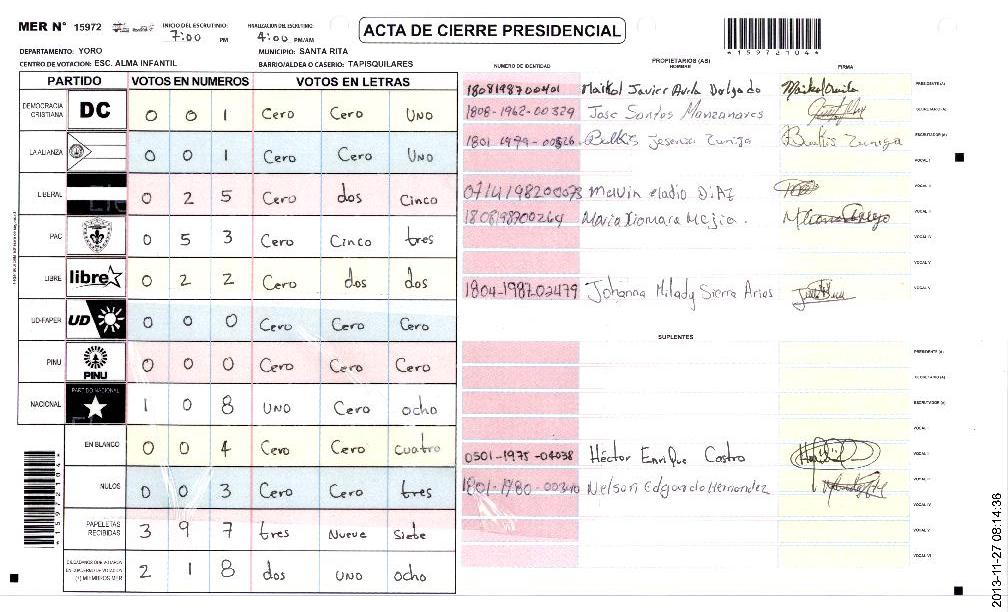 MER N° 15972
INICIO DEL ESCRUTINIO:
7:00 PM
FINALIZACION DEL ESCRUTINIO:
4:00 PM/AM
ACTA DE CIERRE PRESIDENCIAL
*15972104*
DEPARTAMENTO: YORO
MUNICIPIO: SANTA RITA
CENTRO DE VOTACION: ESC. ALMA INFANTIL
BARRIO/ALDEA O CASERIO: TAPISQUILARES
PARTIDO VOTOS EN NUMEROS VOTOS EN LETRAS
DEMOCRACIA CRISTIANA DC 0 0 1 Cero Cero UNO
LA ALIANZA 0 0 1 Cero Cero UNO
LIBERAL 0 2 5 Cero dos Cinco
PAC 0 5 3 Cero Cinco tres
LIBRE libre 0 2 2 Cero dos dos
UD-FAPER UD 0 0 0 Cero Cero Cero
PINU PINU 0 0 0 Cero Cero Cero
NACIONAL PARTIDO NACIONAL 1 0 8 UNO Cero ocho
EN BLANCO 0 0 4 Cero Cero cuatro
NULOS 0 0 3 Cero Cero tres
PAPELETAS RECIBIDAS 3 9 7 tres Nueve Siete
CIUDADANOS QUE VOTARON EN CUADERNO DE VOTACION (+) MIEMBROS MER 2 1 8 dos UNO ocho
*15972104*
NUMERO DE IDENTIDAD
PROPIETARIOS (AS)
NOMBRE
FIRMA
1808198700401 Maikol Javier Avila Delgado Maikol Avila PRESIDENTE (A)
1808-1962-00329 Jose Santos Manzanares SECRETARIO (A)
1801 1979-00526 Belkis Jesenia Zuniga Belkis Zuniga ESCRUTADOR (A)
VOCAL I
Melvin eladio DiAZ VOCAL II
1808198700264 Maria Xiomara Mejia. VOCAL III
VOCAL IV
VOCAL V
1804-1987-02479 Johanna Milady Sierra Arias
SUPLENTES
PRESIDENTE (A)
SECRETARIO (A)
ESCRUTADOR (A)
VOCAL I
0501-1975-04038 Héctor Enrique Castro VOCAL II
1801-1980-00340 Nelson Edgardo Hernandez
VOCAL IV
VOCAL V
VOCAL VI
2013-11-27 08:14:36